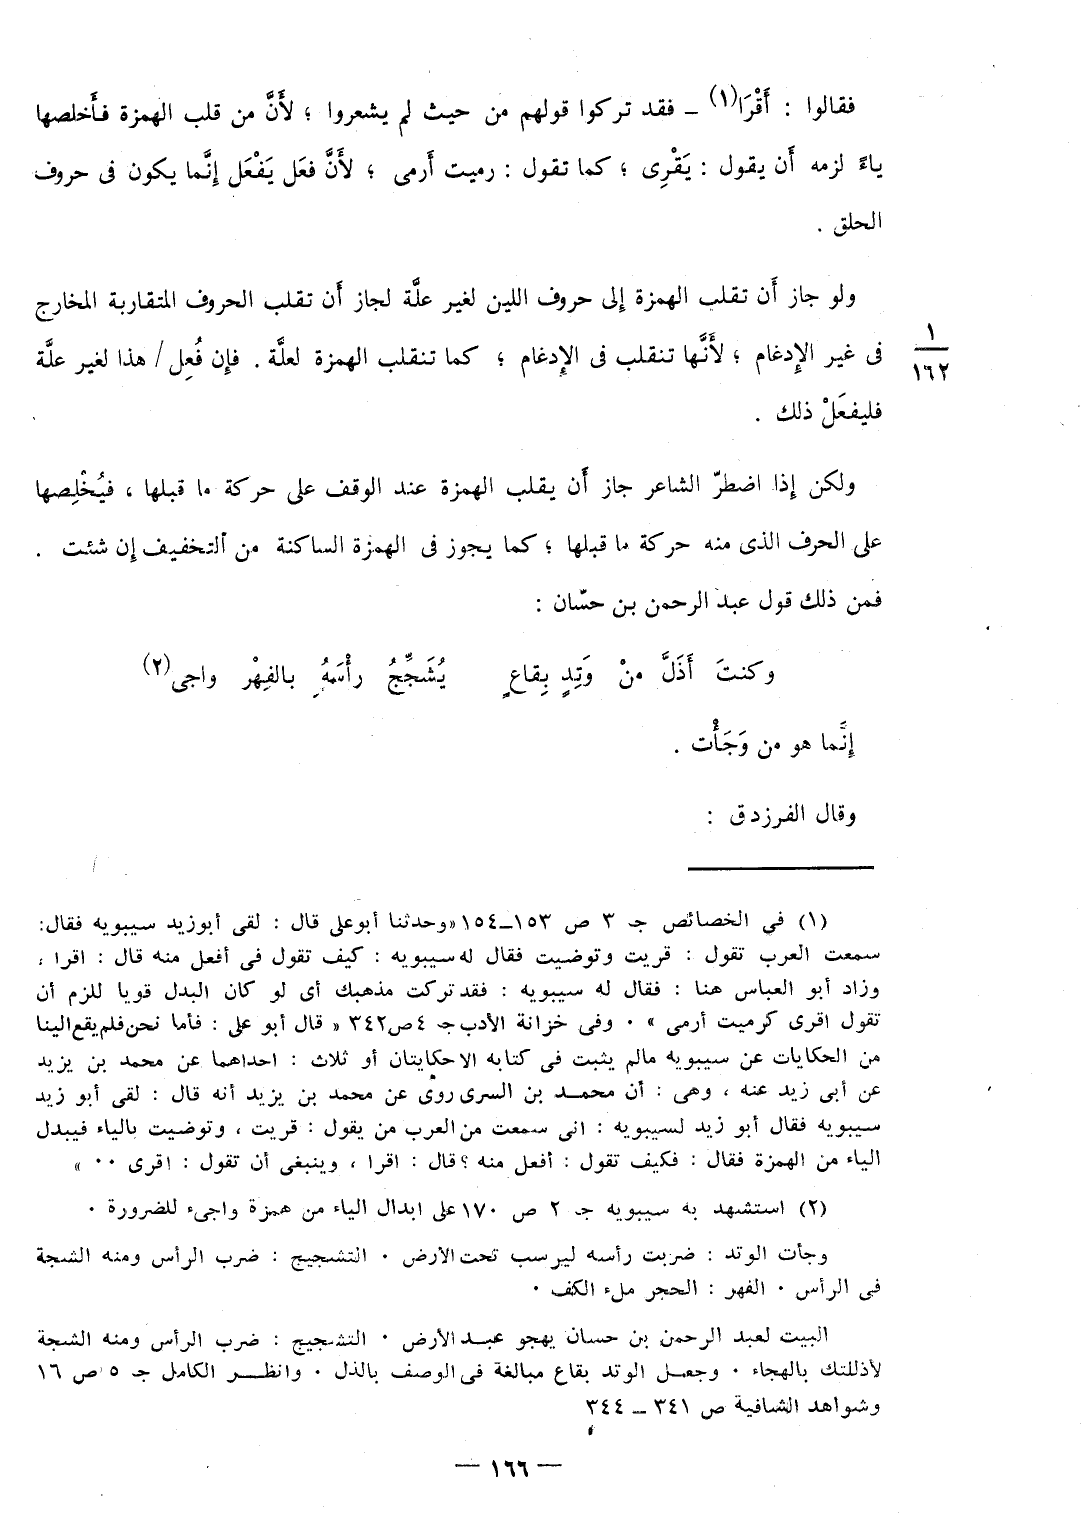 فقالوا : أَقْرَا(١) ــ فقد تركوا قولهم من حيث لم يشعروا ؛ لأَنَّ من قلب الهمزة فأَخلصها
ياءً لزمه أَن يقول : يَقْرِى ؛ كما تقول : رميت أَرمى ؛ لأَنَّ فعَل يَفْعَل إِنَّما يكون فى حروف
الحلق .
ولو جاز أَن تقلب الهمزة إِلى حروف اللين لغير علَّة لجاز أَن تقلب الحروف المتقاربة المخارج
فى غير الإِدغام ؛ لأَنَّها تنقلب فى الإِدغام ؛ كما تنقلب الهمزة لعلَّة . فإِن فُعِل / هذا لغير علَّة
١
١٦٢
فليفعَلْ ذلك .
ولكن إِذا اضطرّ الشاعر جاز أَن يقلب الهمزة عند الوقف على حركة ما قبلها ، فيُخْلِصها
على الحرف الذى منه حركة ما قبلها ؛ كما يجوز فى الهمزة الساكنة من التخفيف إِن شئت .
فمن ذلك قول عبد الرحمن بن حسّان :
وكنتَ أَذَلَّ منْ وَتِدٍ بِقاعٍ يُشَجِّجُ رأْسَهُ بالفِهْرِ واجى(٢)
إِنَّما هو من وَجَأْت .
وقال الفرزدق :
(١) في الخصائص جـ ٣ ص ١٥٣ــ١٥٤ «وحدثنا أبوعلى قال : لقى أبوزيد سيبويه فقال:
سمعت العرب تقول : قريت وتوضيت فقال له سيبويه : كيف تقول فى أفعل منه قال : اقرا ،
وزاد أبو العباس هنا : فقال له سيبويه : فقد تركت مذهبك أى لو كان البدل قويا للزم أن
تقول اقرى كرميت أرمى » ٠ وفى خزانة الأدب جـ ٤ ص ٣٤٢ « قال أبو على : فأما نحن فلم يقع الينا
من الحكايات عن سيبويه مالم يثبت فى كتابه الاحكايتان أو ثلاث : احداهما عن محمد بن يزيد
عن أبى زيد عنه ، وهى : أن محمد بن السرى روى عن محمد بن يزيد أنه قال : لقى أبو زيد
سيبويه فقال أبو زيد لسيبويه : انى سمعت من العرب من يقول : قريت ، وتوضيت بالياء فيبدل
الياء من الهمزة فقال : فكيف تقول : أفعل منه ؟ قال : اقرا ، وينبغى أن تقول : اقرى ٠٠ »
(٢) استشهد به سيبويه جـ ٢ ص ١٧٠ على ابدال الياء من همزة واجىء للضرورة ٠
وجأت الوتد : ضربت رأسه ليرسب تحت الارض ٠ التشجيج : ضرب الرأس ومنه الشجة
فى الرأس ٠ الفهر : الحجر ملء الكف ٠
البيت لعبد الرحمن بن حسان يهجو عبد الأرض ٠ التشجيج : ضرب الرأس ومنه الشجة
لأذللتك بالهجاء ٠ وجعل الوتد بقاع مبالغة فى الوصف بالذل ٠ وانظر الكامل جـ ٥ ص ١٦
وشواهد الشافية ص ٣٤١ ــ ٣٤٤
— ١٦٦ —